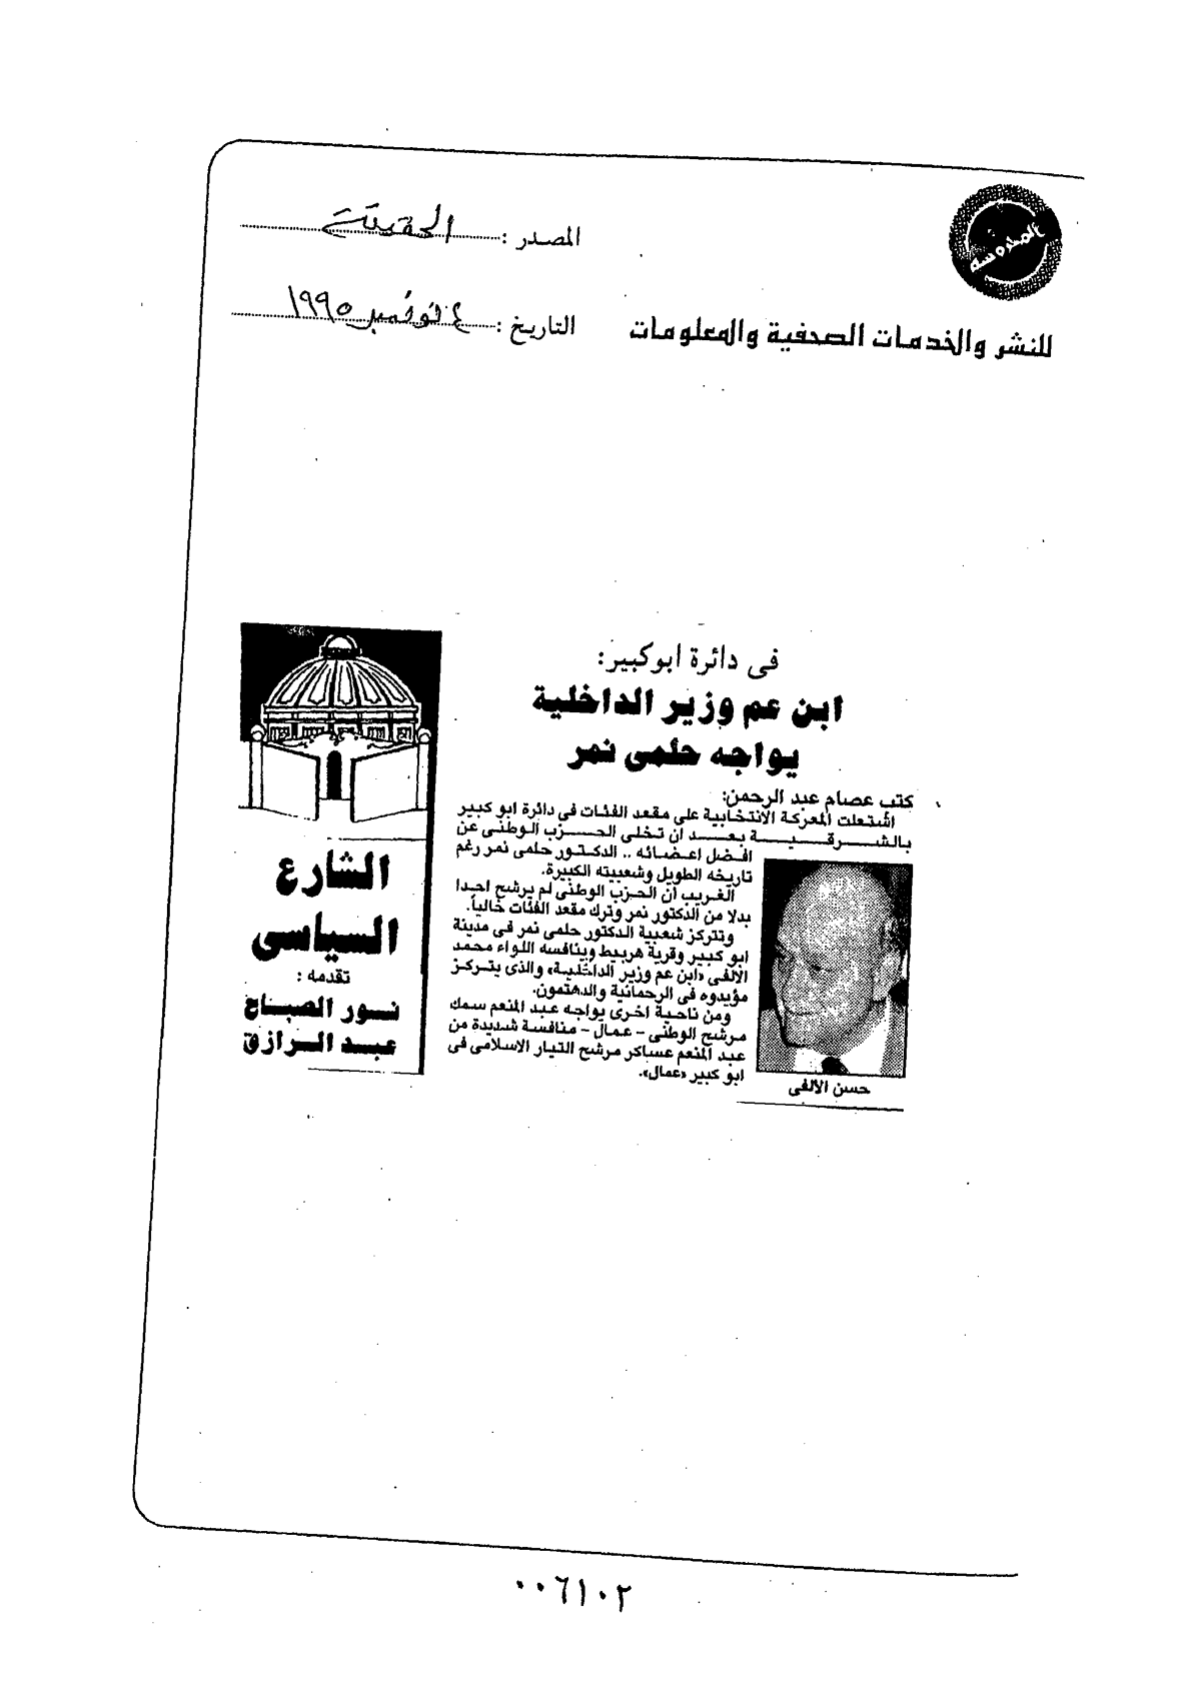 المحروسة
للنشر والخدمات الصحفية والمعلومات
المصدر : الحقيقة
التاريخ : ٤ نوفمبر ١٩٩٥
فى دائرة ابوكبير:
ابن عم وزير الداخلية
يواجه حلمى نمر
كتب عصام عبد الرحمن:
اشتعلت المعركة الانتخابية على مقعد الفئات فى دائرة ابو كبير
بالشرقية بعد ان تخلى الحزب الوطنى عن
افضل اعضائه .. الدكتور حلمى نمر رغم
تاريخه الطويل وشعبيته الكبيرة.
الغريب ان الحزب الوطنى لم يرشح احدا
بدلا من الدكتور نمر وترك مقعد الفئات خالياً.
وتتركز شعبية الدكتور حلمى نمر فى مدينة
ابو كبير وقرية هربيط وينافسه اللواء محمد
الالفى «ابن عم وزير الداخلية» والذى يتركز
مؤيدوه فى الرحمانية والدهتمون.
ومن ناحية اخرى يواجه عبد المنعم سمك
مرشح الوطنى - عمال - منافسة شديدة من
عبد المنعم عساكر مرشح التيار الاسلامى فى
ابو كبير «عمال».
حسن الالفى
الشارع
السياسى
تقدمه :
نور الصباح
عبد الرازق
٠٠٦١٠٢